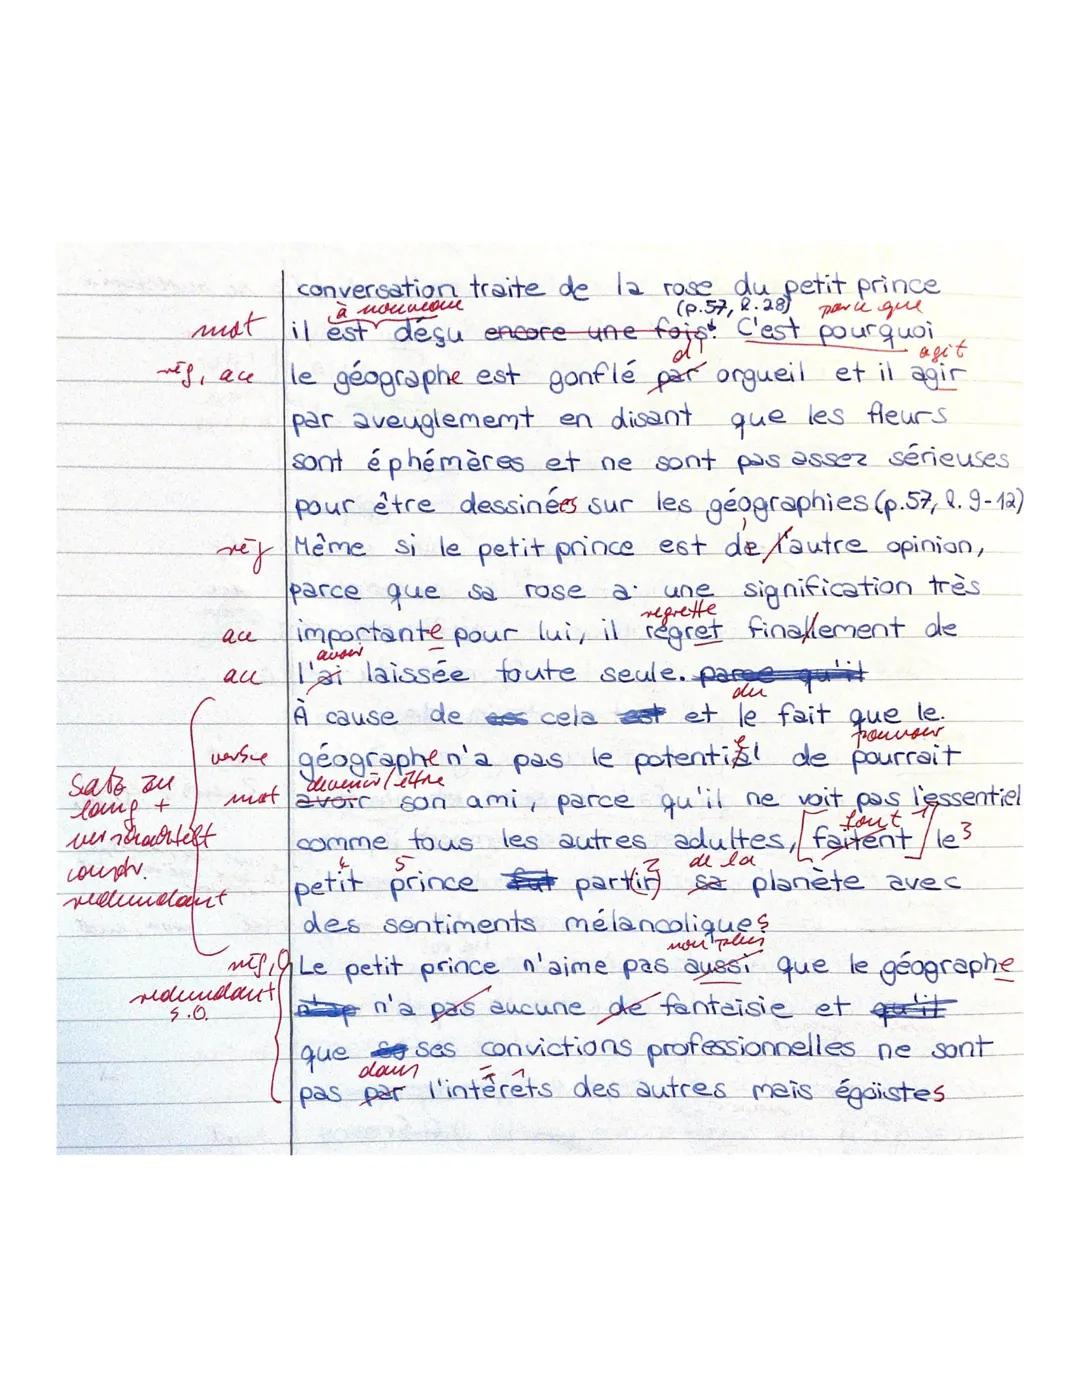 conversation traite de la rose du petit prince
à nouveau (p.57, l.28) parce que
mot il est déçu encore une fois. C'est pourquoi
d' agit
rég, acc le géographe est gonflé par orgueil et il agir
par aveuglememt en disant que les fleurs
sont éphémères et ne sont pas assez sérieuses
pour être dessinées sur les géographies (p.57, l. 9-12)
rég Même si le petit prince est de l'autre opinion,
parce que sa rose a une signification très
regrette
acc importante pour lui, il régret finallement de
avoir
acc l'ai laissée toute seule. parce qu'il
du
À cause de cela est et le fait que le
pouvoir
verbe géographe n'a pas le potentiel de pourrait
devenir/être
Satz zu lang + verschachtelt
mot avoir son ami, parce qu'il ne voit pas l'essentiel
font 1
comme tous les autres adultes, [faitent] le 3
redundant
4 5 2 de la
petit prince fut partir sa planète avec
des sentiments mélancoliques
non plus
rég, Le petit prince n'aime pas aussi que le géographe
redundant
s.o.
n'a pas aucune de fantaisie et qu'il
que ses convictions professionnelles ne sont
dans
pas par l'intérêts des autres mais égoïstes